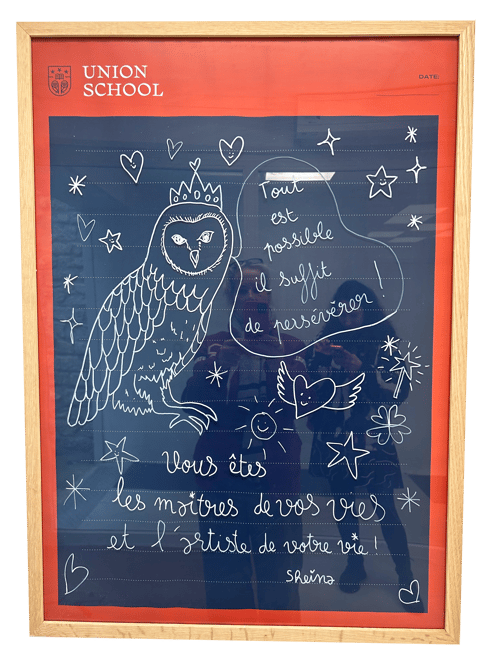 UNION
SCHOOL
DATE:
Tout
est
possible
il suffit
de persévérer !
Vous êtes
les maîtres de vos vies
et l'artiste de votre vie !
Sheina